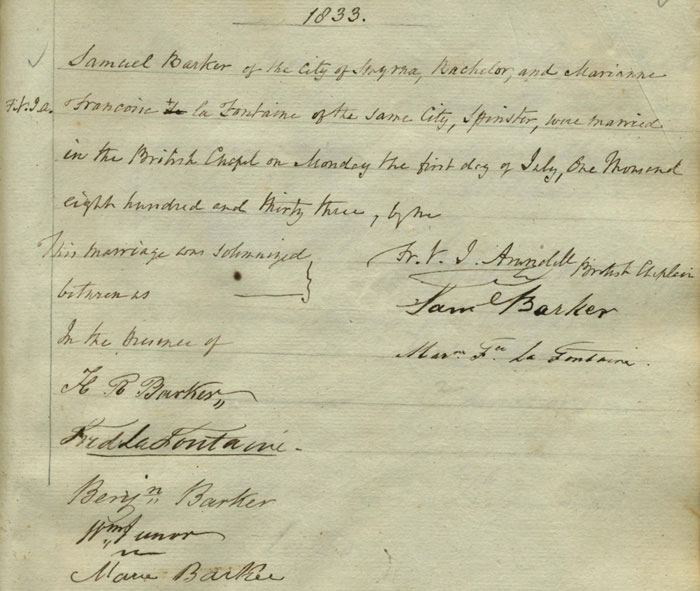 1833.
Samuel Barker of the City of Smyrna, Bachelor, and Marianne
F.V.J.A. Francoise la Fontaine of the same City, Spinster, were married
in the British Chapel on Monday the first day of July, One Thousand
eight hundred and thirty three, by me
Fr. V. J. Arundell British Chaplain
This marriage was solemnized
between us
Saml Barker
Marne Fse La Fontaine.
In the Presence of
H R Barker,,
Fred La Fontaine.
Benjn Barker
Wm Junor
Marie Barker